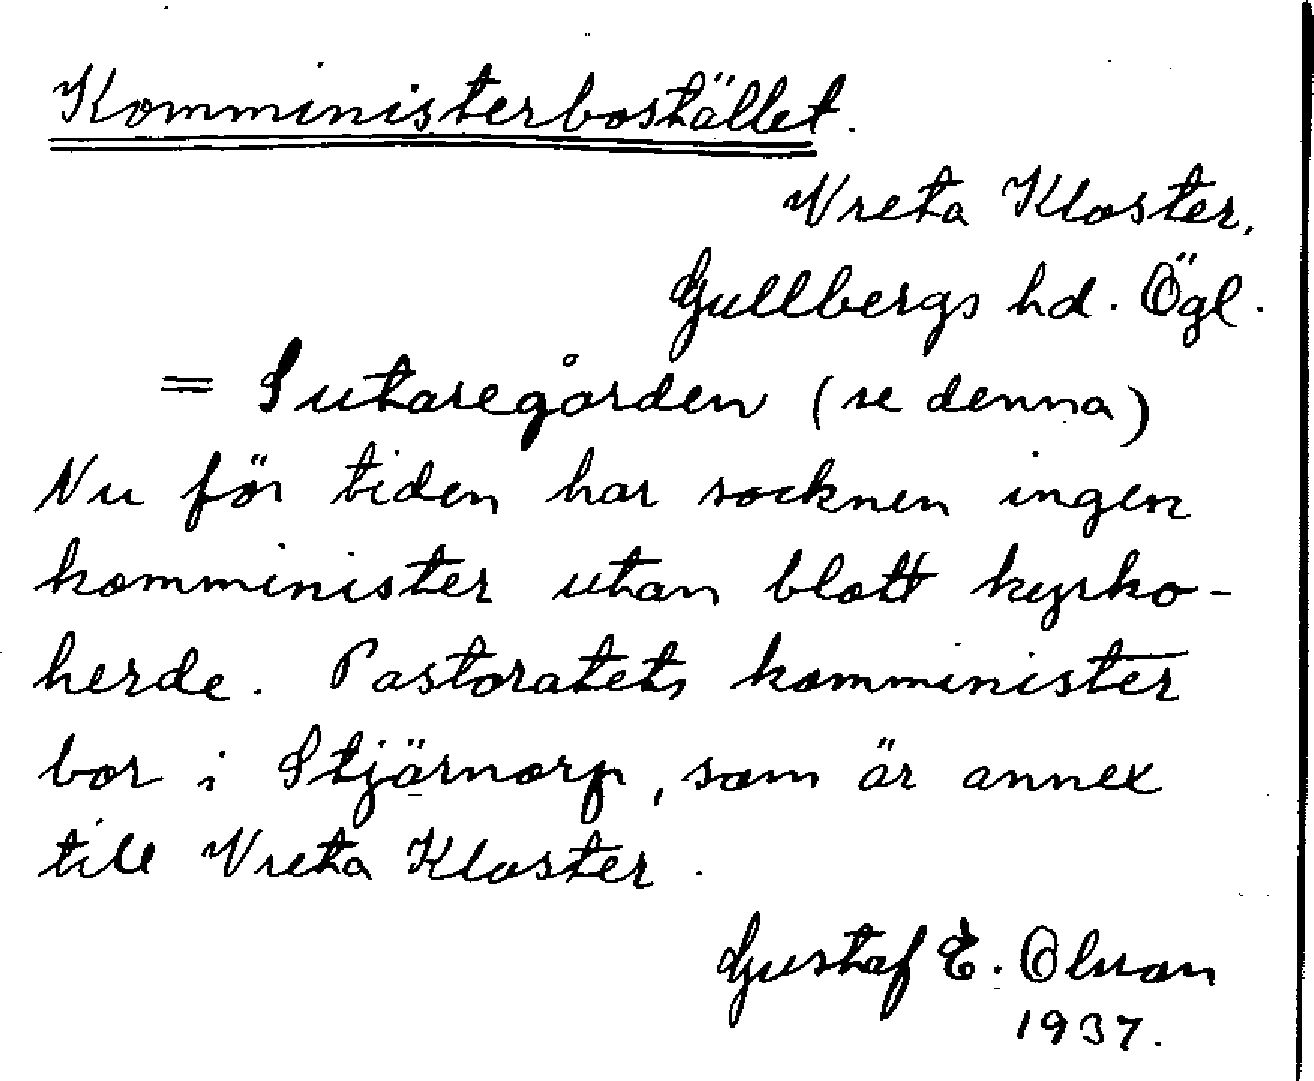 Komministerbostället.
Vreta Kloster,
Gullbergs hd. Ögl.
= Sutaregården (se denna)
Nu för tiden har socknen ingen
komminister utan blott kyrko-
herde. Pastoratets komminister
bor i Stjärnorp, som är annex
till Vreta Kloster.
Gustaf E. Olsson
1937.